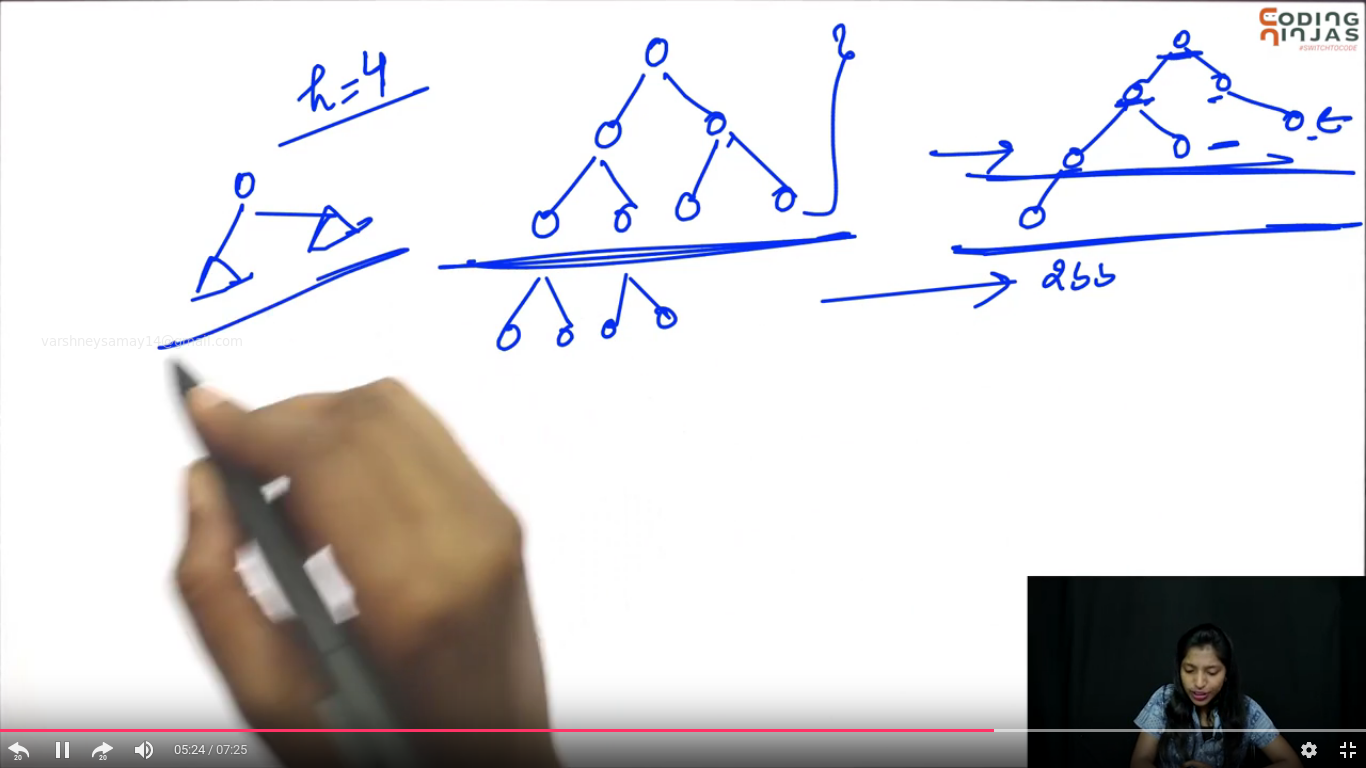 CODING
NINJAS
#SWITCHTOCODE
h=4
2bb
varshneysamay14@gmail.com
20
20
05:24 / 07:25